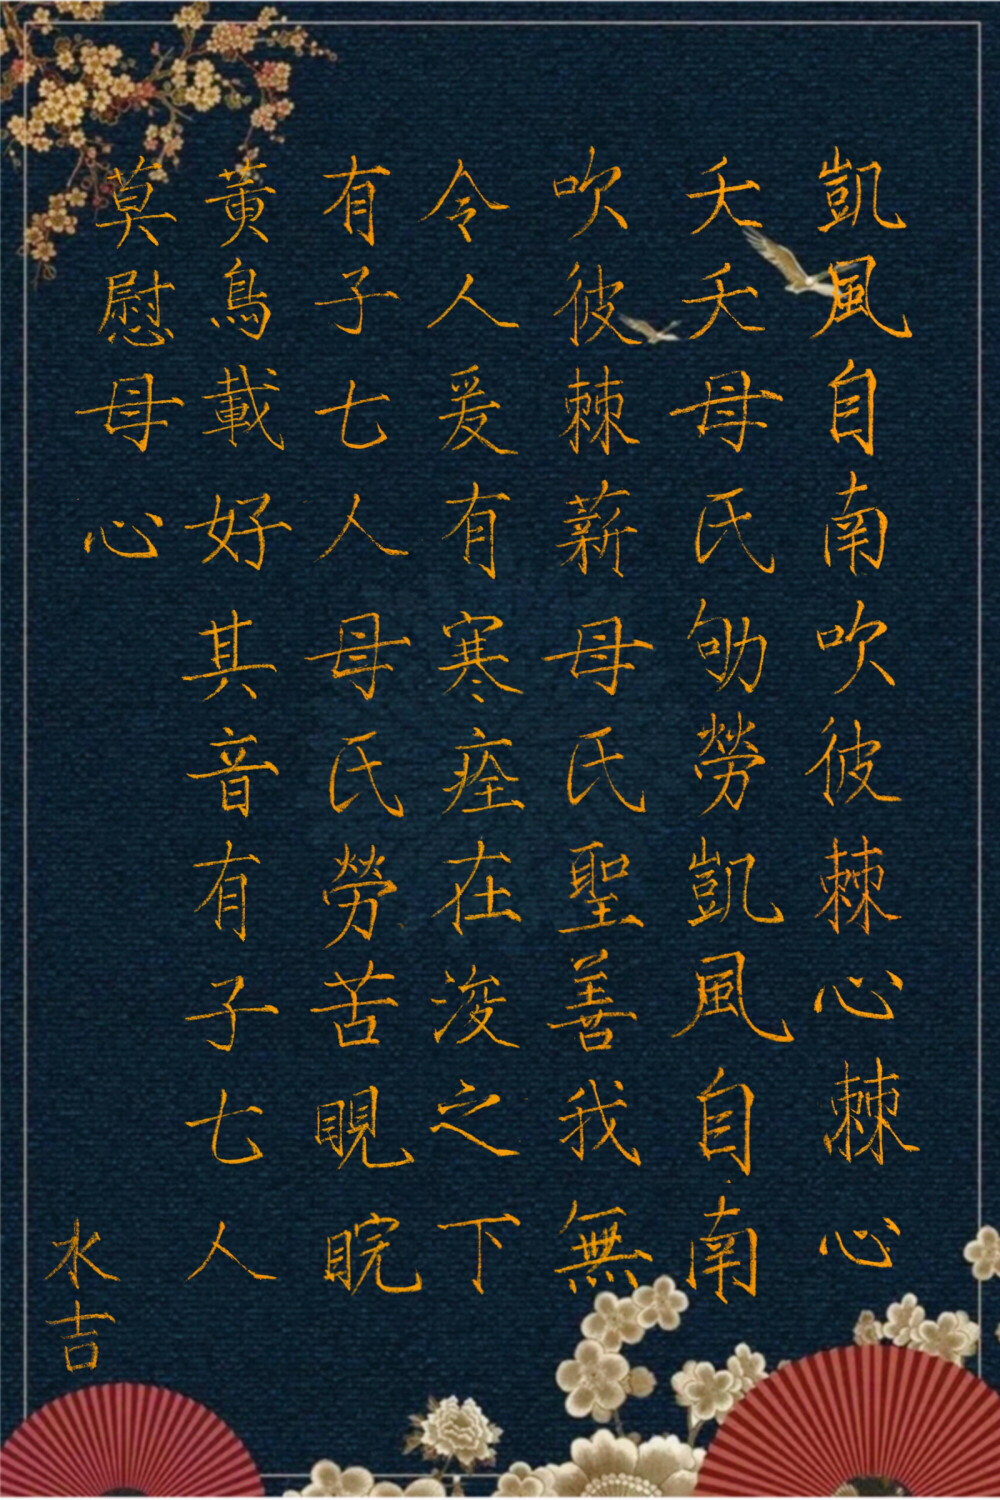 凱風自南吹彼棘心棘心
夭夭母氏劬勞凱風自南
吹彼棘薪母氏聖善我無
令人爰有寒痊在浚之下
有子七人母氏勞苦睍睆
黃鳥載好其音有子七人
莫慰母心
水吉